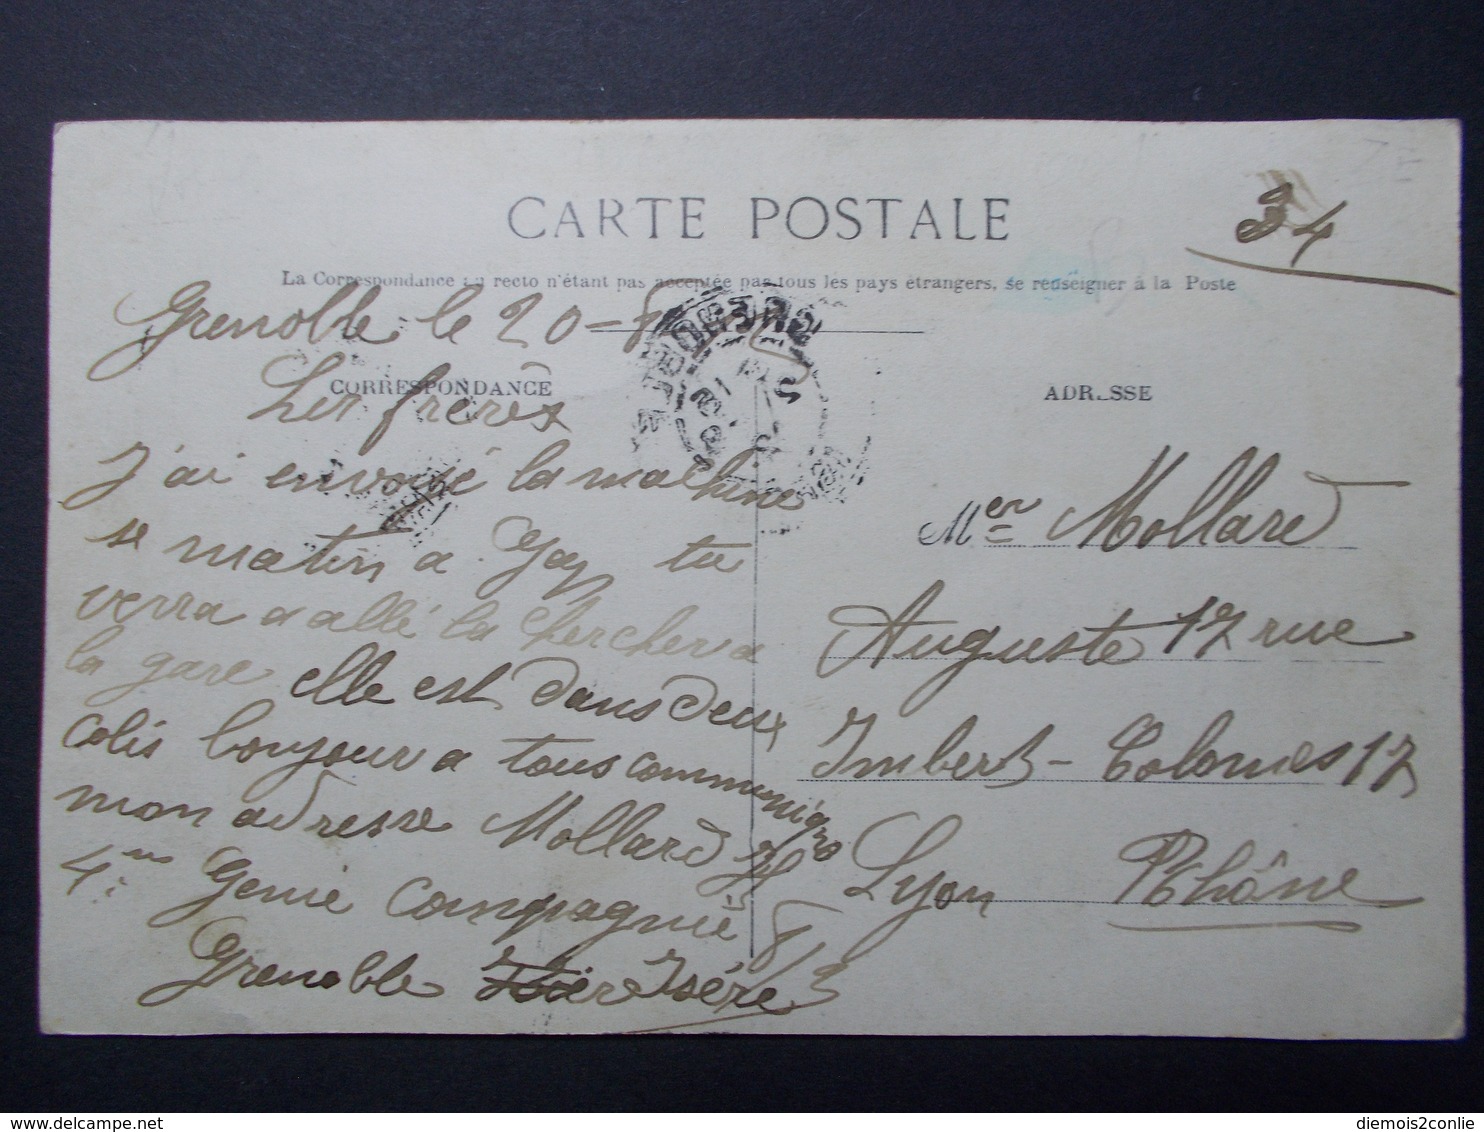 34
CARTE POSTALE
La Correspondance au recto n'étant pas acceptée pas tous les pays étrangers, se renseigner à la Poste
Grenoble le 20-8
CORRESPONDANCE
Les frères
J'ai envoié la machine
se matin a tu
verra a allé la chercher a
la gare elle est dans deux
colis bonjour a tous communiqué
mon adresse Mollard
4me Genie compagnie 8/3
Grenoble Isére
ADRESSE
Mer Mollard
Auguste 17 rue
Imbert-Colomes 17
Lyon Rhône
diemois2conlie